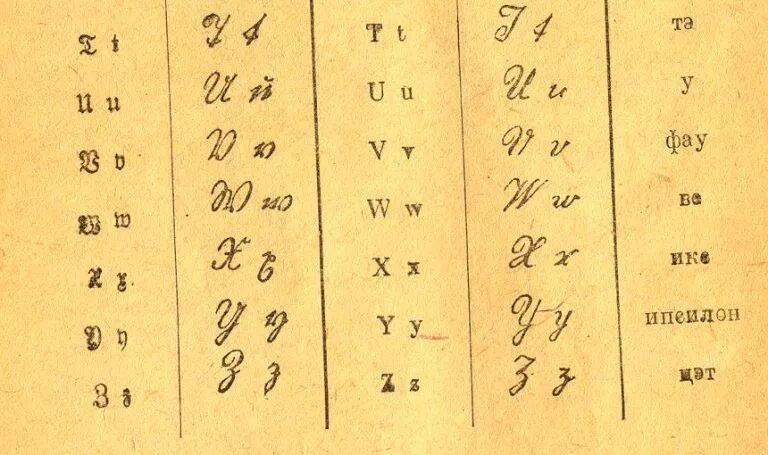 𝔗 t T t T t T t тэ
U u U u U u U u у
V v V v V v V v фау
W w W w W w W w ве
X x X x X x X x икс
Y y Y y Y y Y y ипсилон
Z z Z z Z z Z z цэт